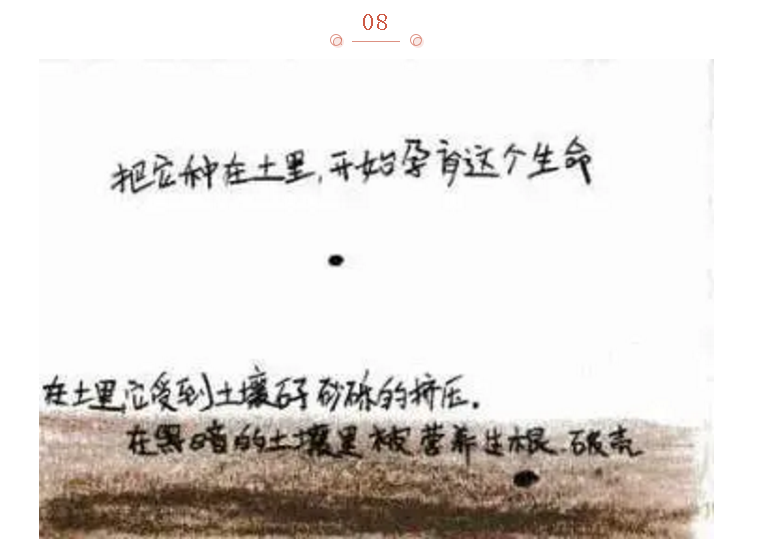 08
把它种在土里,开始孕育这个生命
在土里,它受到土壤 砂砾的挤压.
在黑暗的土壤里被营养生根.破壳